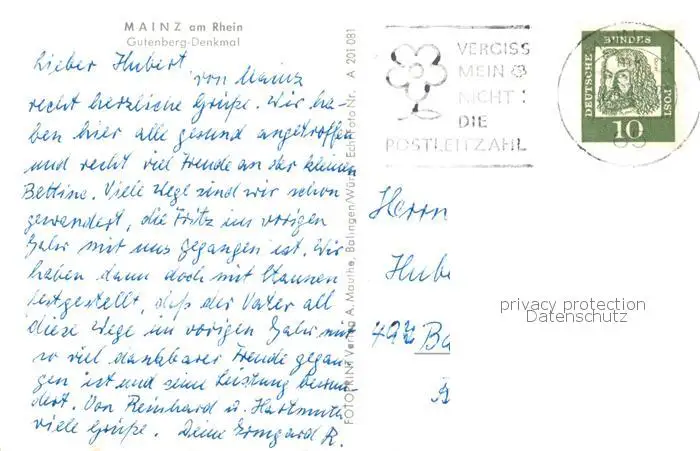 MAINZ am Rhein
Gutenberg-Denkmal
Lieber Hubert
von Mainz
recht herzliche Grüße. Wir ha-
ben hier alle gesund angetroffen
und recht viel Freude an der kleinen
Bettina. Viele Wege sind wir schon
gewandert, die Fritz im vorigen
Jahr mit uns gegangen ist. Wir
haben dann doch mit Staunen
festgestellt, daß der Vater all
diese Wege im vorigen Jahr mit
so viel dankbarer Freude gegan-
gen ist und seine Leistung bewun-
dert. Von Reinhard u. Hartmut
viele Grüße. Deine Irmgard R.
FOTOPRINT Verlag A. Mauthe, Balingen/Würt. Echt Foto Nr. A 201 081
VERGISS
MEIN
NICHT:
DIE
POSTLEITZAHL
DEUTSCHE BUNDESPOST
10
Herrn
Hube
Ba
privacy protection
Datenschutz